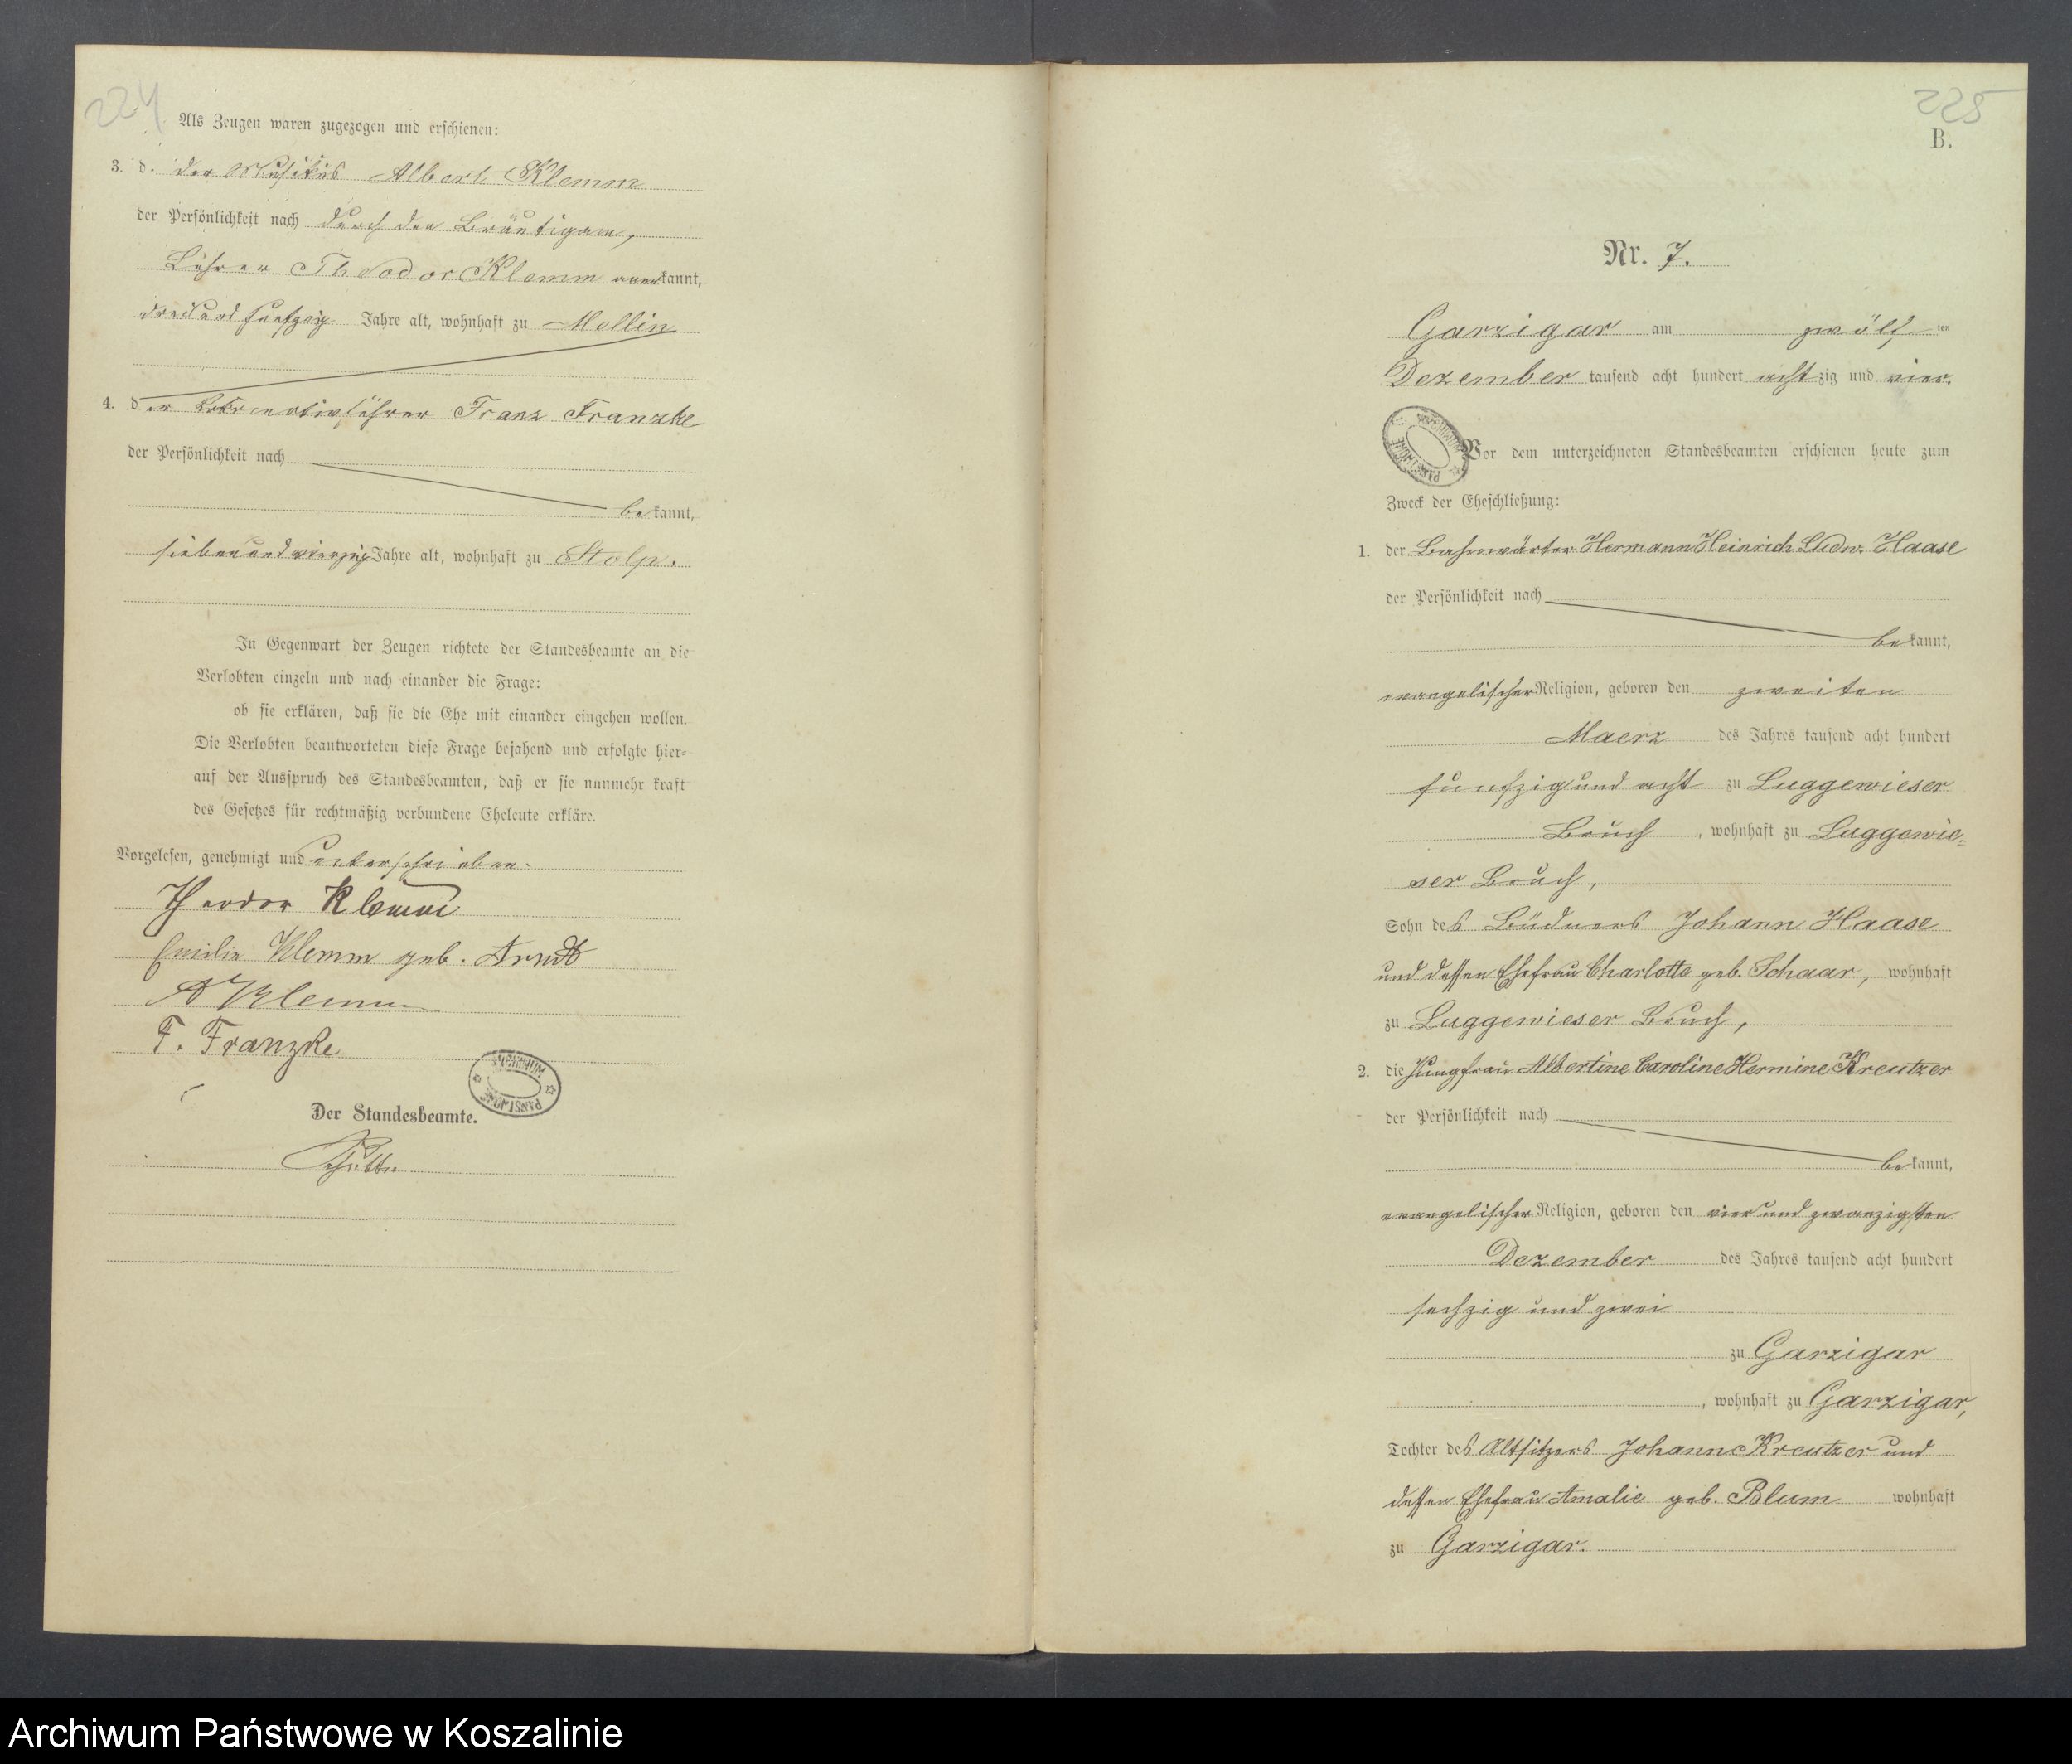 224
Als Zeugen waren zugezogen und erschienen:
3. d. der Musikus Albert Klemm
der Persönlichkeit nach durch den Bräutigam,
Lehrer Theodor Klemm anerkannt,
dreiundfunfzig Jahre alt, wohnhaft zu Mellin
4. der Lokomotivführer Franz Franzke
der Persönlichkeit nach
bekannt,
siebenundvierzig Jahre alt, wohnhaft zu Stolp.
In Gegenwart der Zeugen richtete der Standesbeamte an die
Verlobten einzeln und nach einander die Frage:
ob sie erklären, daß sie die Ehe mit einander eingehen wollen.
Die Verlobten beantworteten diese Frage bejahend und erfolgte hier-
auf der Ausspruch des Standesbeamten, daß er sie nunmehr kraft
des Gesetzes für rechtmäßig verbundene Eheleute erkläre.
Vorgelesen, genehmigt und unterschrieben.
Theodor Klemm
Emilie Klemm geb. Arndt
A Klemm
F. Franzke
ARCHIWUM PAŃSTWOWE
Der Standesbeamte.
225
B.
Nr. 7.
Garzigar am zwölften
Dezember tausend acht hundert achtzig und vier.
ARCHIWUM PAŃSTWOWE
Vor dem unterzeichneten Standesbeamten erschienen heute zum
Zweck der Eheschließung:
1. der Bahnwärter Hermann Heinrich Ludw. Haase
der Persönlichkeit nach
bekannt,
evangelischer Religion, geboren den zweiten
Maerz des Jahres tausend acht hundert
funfzig und acht zu Luggewieser
Bruch, wohnhaft zu Luggewie=
ser Bruch,
Sohn des Büdners Johann Haase
und dessen Ehefrau Charlotte geb. Schaar, wohnhaft
zu Luggewieser Bruch,
2. die Jungfrau Albertine Caroline Hermine Kreutzer
der Persönlichkeit nach
bekannt,
evangelischer Religion, geboren den vier und zwanzigsten
Dezember des Jahres tausend acht hundert
sechzig und zwei
zu Garzigar
, wohnhaft zu Garzigar,
Tochter des Altsitzers Johann Kreutzer und
dessen Ehefrau Amalie geb. Blum wohnhaft
zu Garzigar.
Archiwum Państwowe w Koszalinie